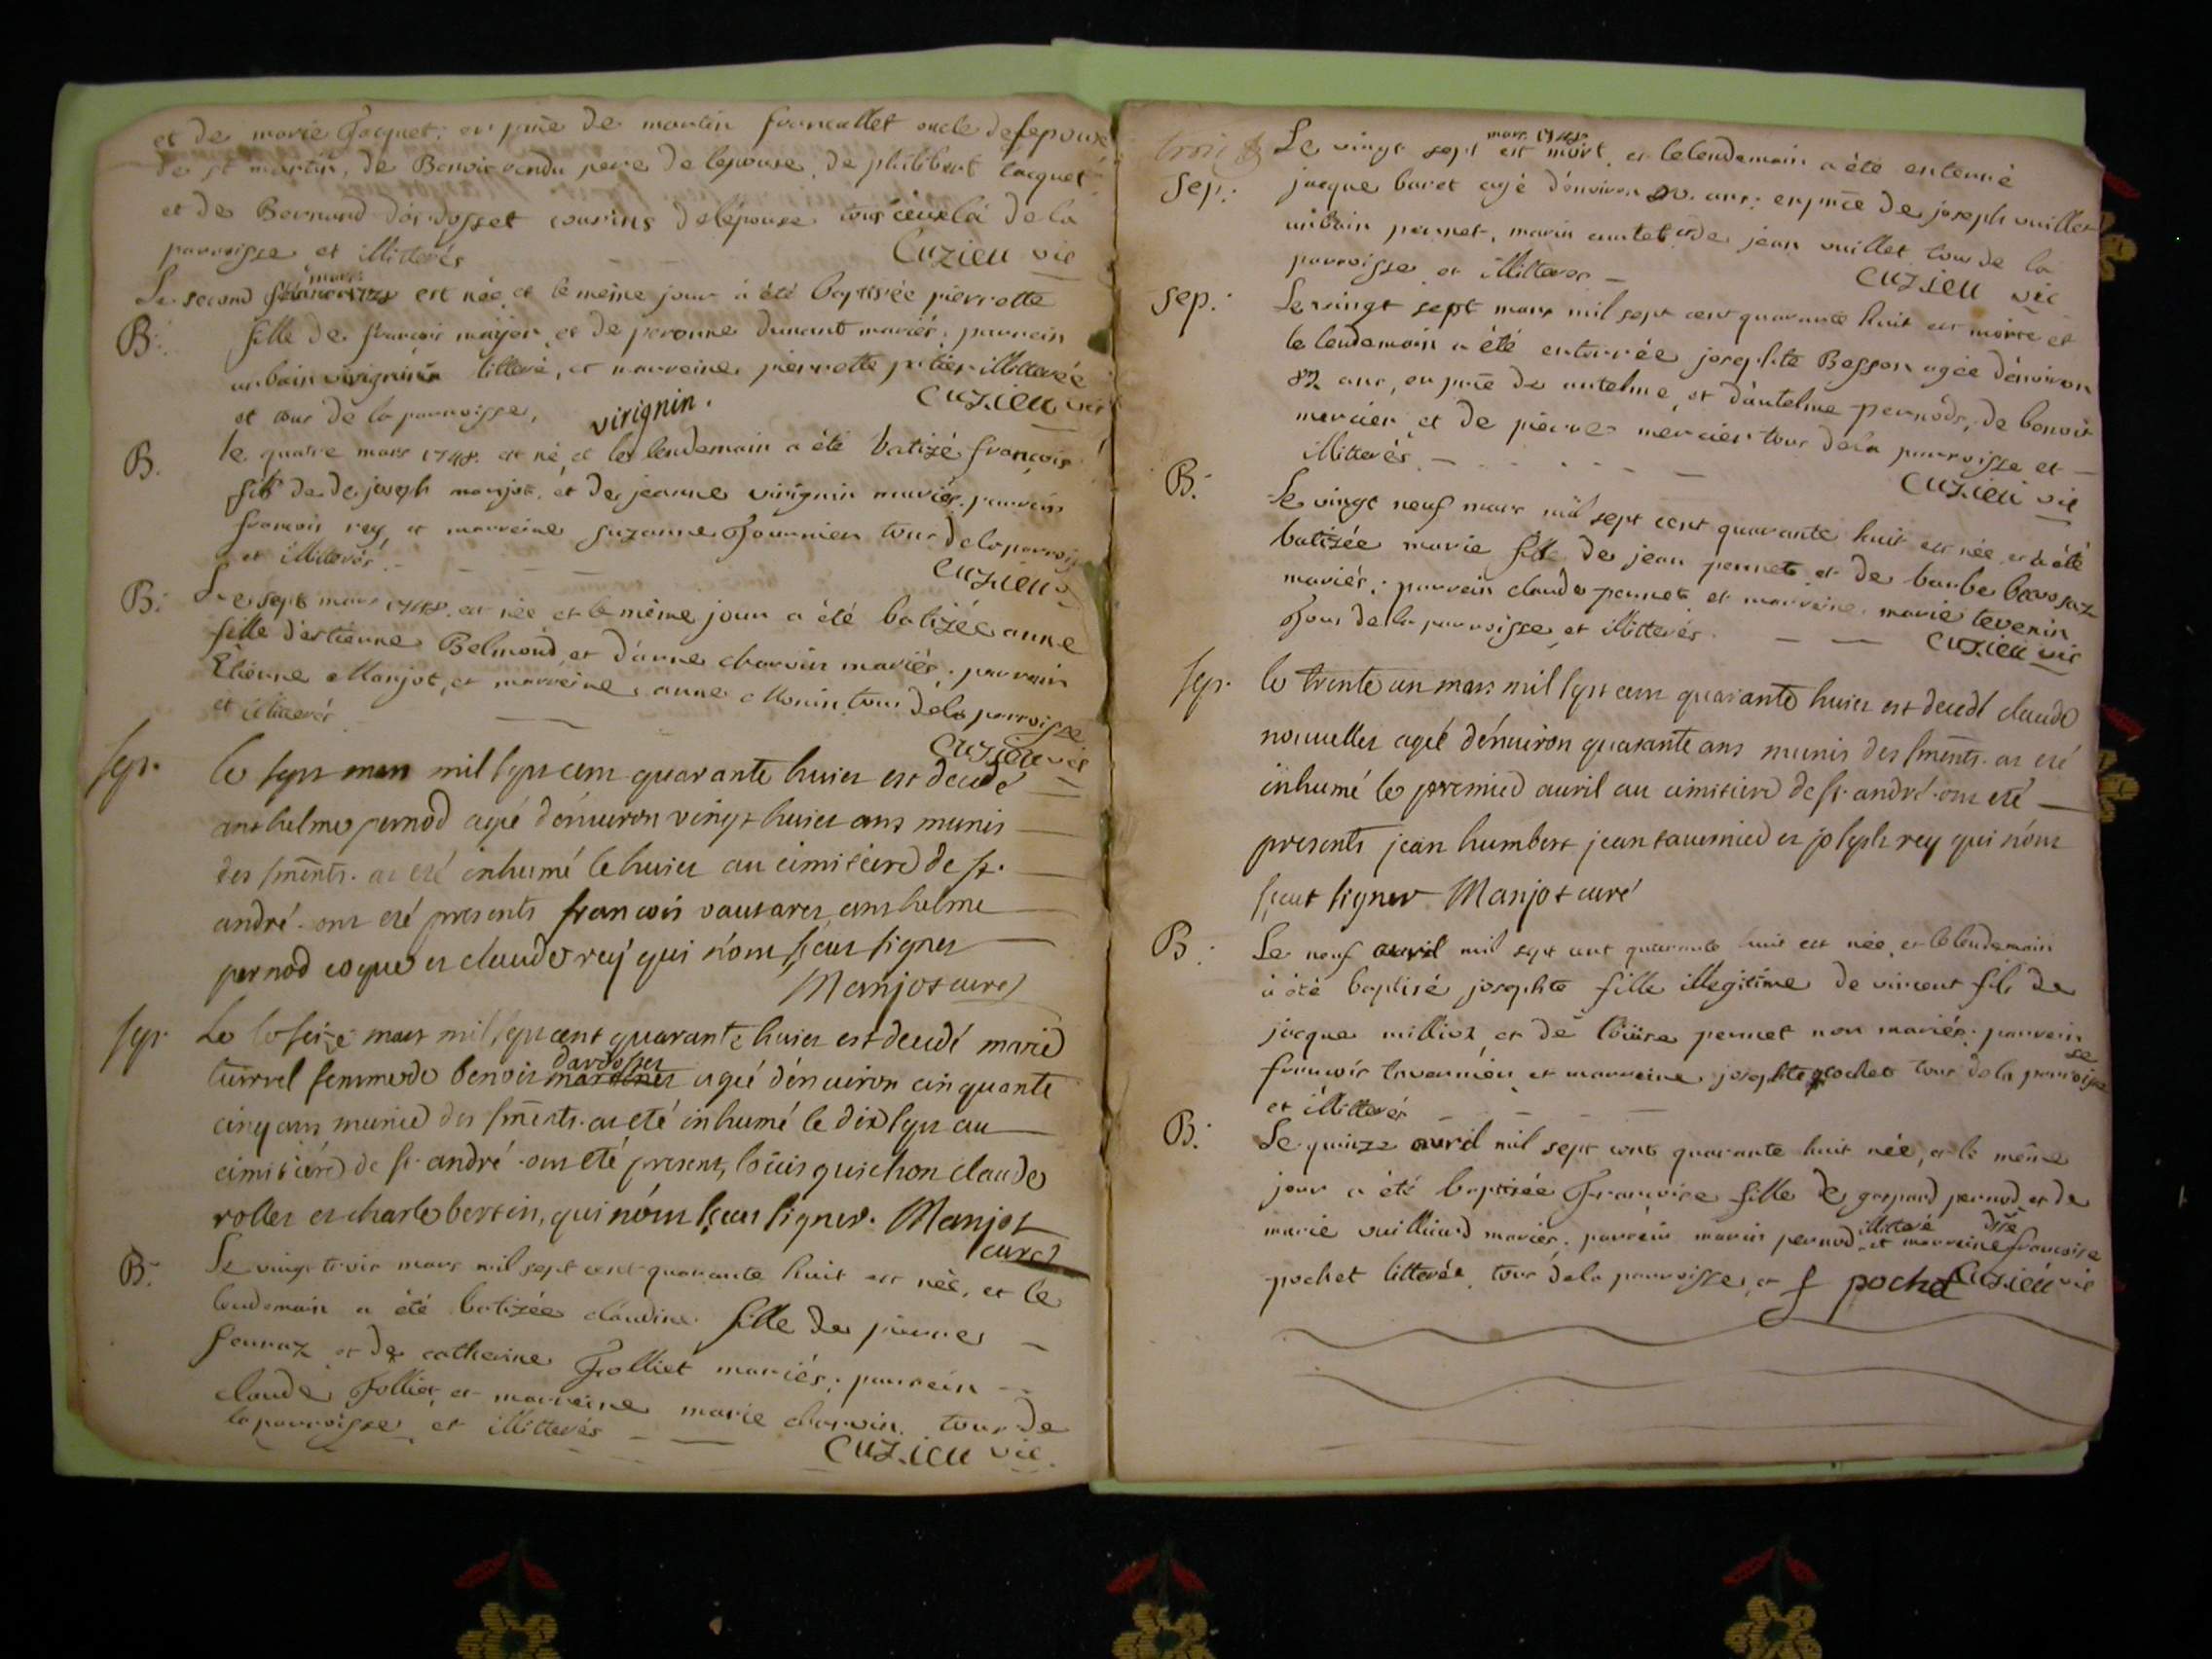 et de marie Jacquet; en pñce de martin francallet oncle de lepouse
de st martin, de Benoit vendu pere de lepouse, de philibert Jacquet
et de Bernard dardosset cousins de lépouse tous ceux là de la
parroisse et illitterés Cuzieu vic
mars
Le second 1748 est née et le même jour à été baptisée pierrette
B: fille de francois mayer et de peronne durant mariés; parrein
urbain virignin litteré, et marreine pierrette potier illitterée
et tous de la parroisse, Cuzieu vic
virignin.
B. le quatre mars 1748. est né, et le lendemain a été batizé françois
fils de de joseph manjot, et de jeanne virignin mariés. parrein
francois rey, et marreine suzanne fournier tous de la parroisse
et illitterés. Cuzieu v
B: Le sept mars 1748. est née et le même jour a été batizée anne
fille d'estienne Belmond, et d'anne charvin mariés; parrein
Etienne Manjot, et marreine anne Monin tous de la parroisse
et illiterés Cuzieu vic
sep. le sept mars mil sept cent quarante huict est decedé
anthelme pernod agé d'énuiron vingt huict ans munis
des smẽnts. at eté inhumé le huict au cimitiere de st.
andré. ont eté presents francois vautaret anthelme
pernod coque et claude rey qui n'ont sçeut signer
Manjot curé
sep. Le le seize mars mil sept cent quarante huict est decedé marie
dardosset
turrel femme de benoit agée d'énuiron cinquante
cinq ans munie des smẽnts. at eté inhumé le dix sept au
cimitiere de st. andré. ont eté present, loüis guichon claude
rollet et charle bertin, qui n'ont sçeut signer. Manjot
curé
B: Le vingt trois mars mil sept cent quarante huit est née, et le
lendemain a été batizée claudine fille de pierre
ferraz et de catherine Jolliet mariés; parrein
claude Jollier, et marreine marie charvin tous de
la parroisse et illitterés Cuzieu vic.
mars 1748
trois Le vingt sept est mort, et le lendemain a été enterré
Sep: jacque baret agé d'énviron ans; en pñce de joseph vuillet
urbain pernet, marin et de jean vuillet tous de la
parroisse et illitteres Cuzieu vic
Sep: Le vingt sept mars mil sept cent quarante huit est morte et
le lendemain a été enterrée josephte Besson agée d'énviron
82 ans, en pñce de antelme, et d'antelme pernods, de benoit
mercier et de pierre mercier tous de la parroisse et
illitterés. Cuzieu vic
B: Le vingt neuf mars mil sept cent quarante huit est née et à été
batizée marie fille de jean pernet et de barbe
mariés; parrein claude pernet et marreine marie tevenin
tous de la parroisse et illitterés. Cuzieu vic
sep. le trente un mars mil sept cent quarante huict est decedé claude
nouuellet agé d'énuiron quarante ans munis des smẽnts. at eté
inhumé le premier auril au cimitiere de st. andré. ont eté
presents jean humbert jean tauernier et joseph rey qui n'ont
sçeut signer Manjot curé
B: Le neuf avril mil sept cent quarante huit est née, et le lendemain
à été baptisé josephte fille illegitime de vincent fils de
jacque milliot et de loüise pernet non mariés; parrein
francois tavernier et marreine josephte pochet tous de la parroisse
et illitterés
B: Le quinze avril mil sept cent quarante huit née, et le même
jour a été baptisée francoise fille de gaspard pernod et de
illiteré dlle
marie vuilliard mariés; parrein marin pernod et marreine francoise
pochet litterée tous de la parroisse, et f pochet Cuzieu vic